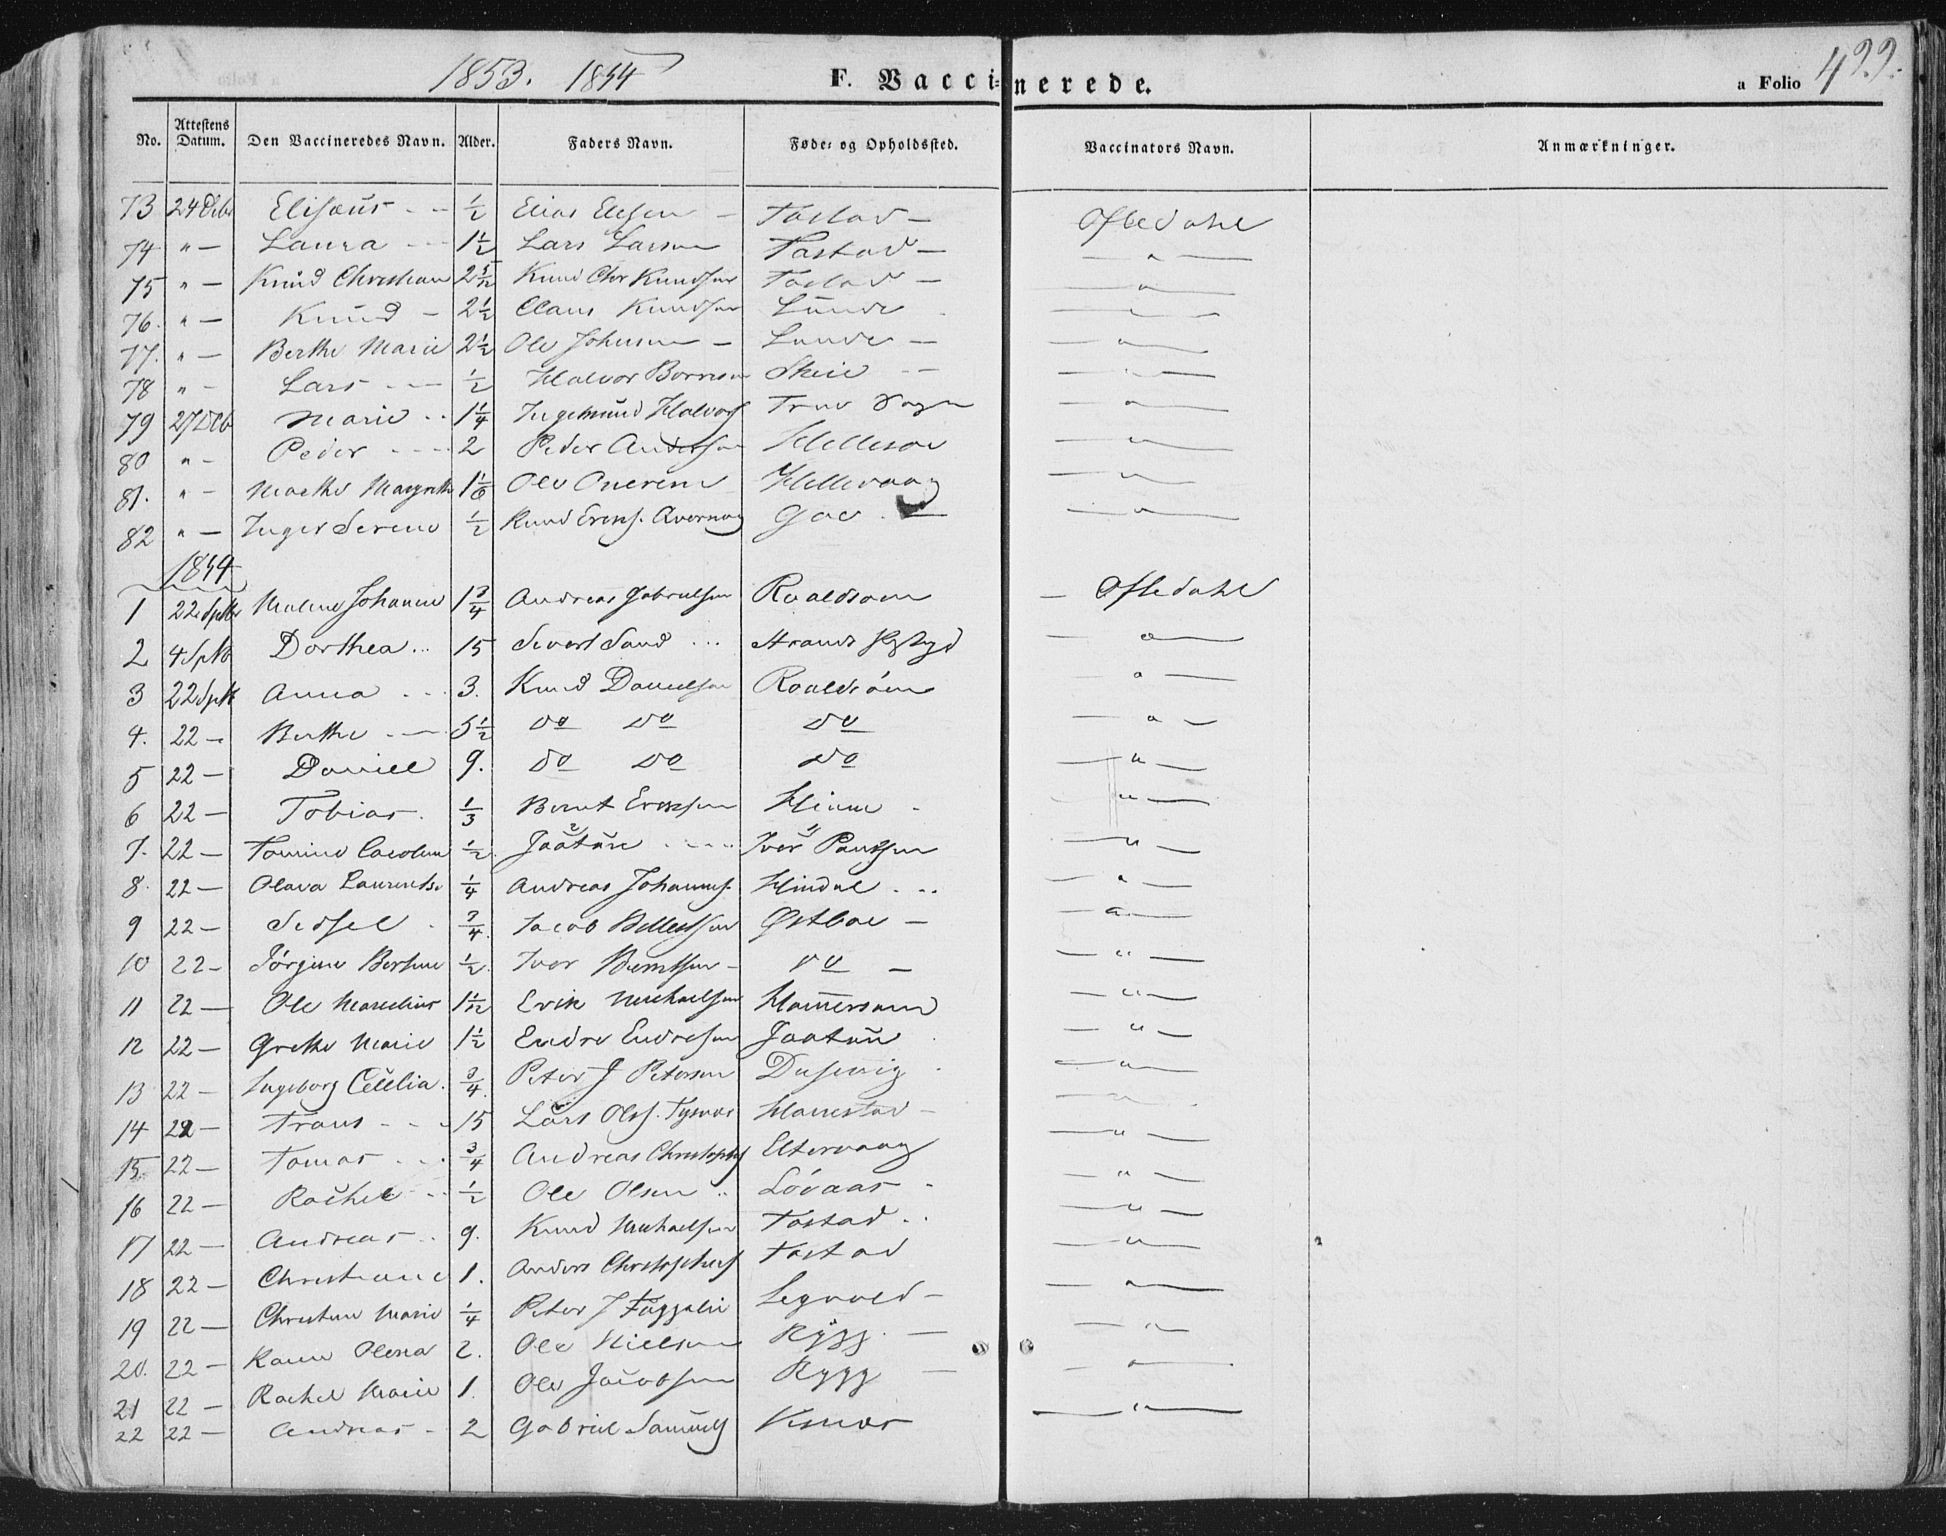 1853. 1854 F. Vaccinerede. a Folio 422.
No. Attestens Datum. Den Vaccineredes Navn. Alder. Faders Navn. Føde- og Opholdssted. Vaccinators Navn. Anmærkninger.
73 24 Debr Elisæus - - 1/2 Elias Elesen - Tastad - Oftedahl
74 " - Laura - - 1 1/2 Lars Larsen Tastad - - " -
75 " - Knud Christian 2 5/12 Knud Chr Knudsen Tastad - - " -
76. " - Knud - 2 1/2 Claus Knudsen Lunde - " -
77. " - Berthe Marie 2 1/2 Ole Johnsen - Lunde - - " -
78 " - Lars - - 1/2 Halvor Skeie - - - " -
79 27 Deb Marie - - 1 1/4 Ingemund Halvors - " -
80 " - Peder - - - 2 Peder Andersen - " -
81. " - Marthe Margrethe 1 1/6 Ole Hillevaag - " -
82 " - Inger Serene 1/2 Knud - " -
1854
1 22 Septbr Malene Johanne 1 3/4 Andreas Gabrielsen Roaldsøen - Oftedahl
2 4 Septb Dorthea... 15 Sivert Sand ... - " -
3 22 Septb Anna - - - 3. Knud Danielsen Roaldsøen - " -
4. 22 - Berthe - - 5 1/2 do do do - " -
5 22 - Daniel 9. do do do - " -
6 22 - Tobias. 1/3 Bernt Ericksen Hinne - - " -
7. 22 - Tomine Caroline 1/2 2 Jaatun - - - - 1 Iver - " -
8. 22 - Olava 1/4 Andreas Johannes. Hindal - .. - " -
9 22 - Sidsel . 3/4. Jacob Østboe - - " -
10 22 - Jørgine 1/2. Iver Berntsen - do - - " -
11 22 - Ole 1 1/12 Erik Michaelsen - " -
12 22 - Grethe Marie 1 1/2 Endre Endresen Jaatun . - " -
13 22 - Ingeborg Cecilia. 3/4. Peter J Petersen Dusevig . - " -
14 22 - - - 15 Lars Ols. - " -
15. 22 - Tomas - - 3/4 Andreas Christophs - " -
16 22 - Rachel - - 1/2 Ole Olsen .. Lövaas - - " -
17 22 - Andreas - . 9. Knud Michaelsen Tastad .. - " -
18 22 - Christiane 1. Anders Christophers Tastad - " -
19 22 - Christine Marie 1/4 Peter J - " -
20. 22 - Karen Olena 2. Ole Nielsen Rygg. - - " -
21 22 - Rachel Marie 1. Ole Jacobsen Rygg - - " -
22 22 - Andreas - 2 Gabriel Samuels - " -